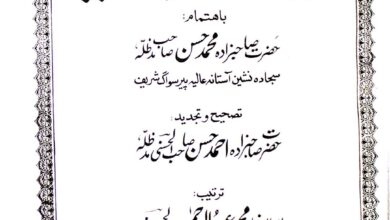 باهتمام:
حضرت صاحبزاده محمد حسن صاحب مدظلہ
سجادہ نشین آستانہ عالیہ پیر سواگ شریف
تصحیح و تجدید:
حضرت صاحبزادہ احمد حسن صاحب الحسنی مدظلہ
ترتیب: